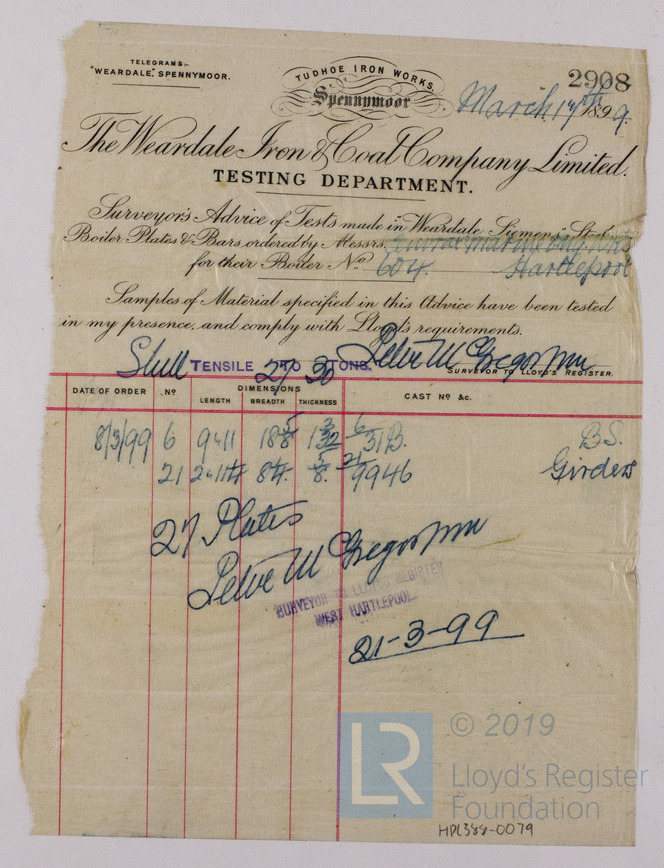 TELEGRAMS:-
"WEARDALE," SPENNYMOOR.
TUDHOE IRON WORKS,
Spennymoor
2908
March 17th 1899.
The Weardale Iron & Coal Company Limited.
TESTING DEPARTMENT.
Surveyor's Advice of Tests made in Weardale Siemens Steel
Boiler Plates & Bars ordered by Messrs. Central Marine Eng. Works
for their Boiler No 604. Hartlepool
Samples of Material specified in this Advice have been tested
in my presence, and comply with Lloyd's requirements.
Shell TENSILE 27 TO 30 TONS. Peter McGregor
SURVEYOR TO LLOYD'S REGISTER.
DATE OF ORDER No DIMENSIONS CAST No &c.
LENGTH BREADTH THICKNESS
8/3/99 6 9-11 B.S.
21 9946 Girders
27 Plates
Peter McGregor
SURVEYOR TO LLOYD'S REGISTER
WEST HARTLEPOOL.
21-3-99
LR
© 2019
Lloyd's Register
Foundation
HPL388-0079